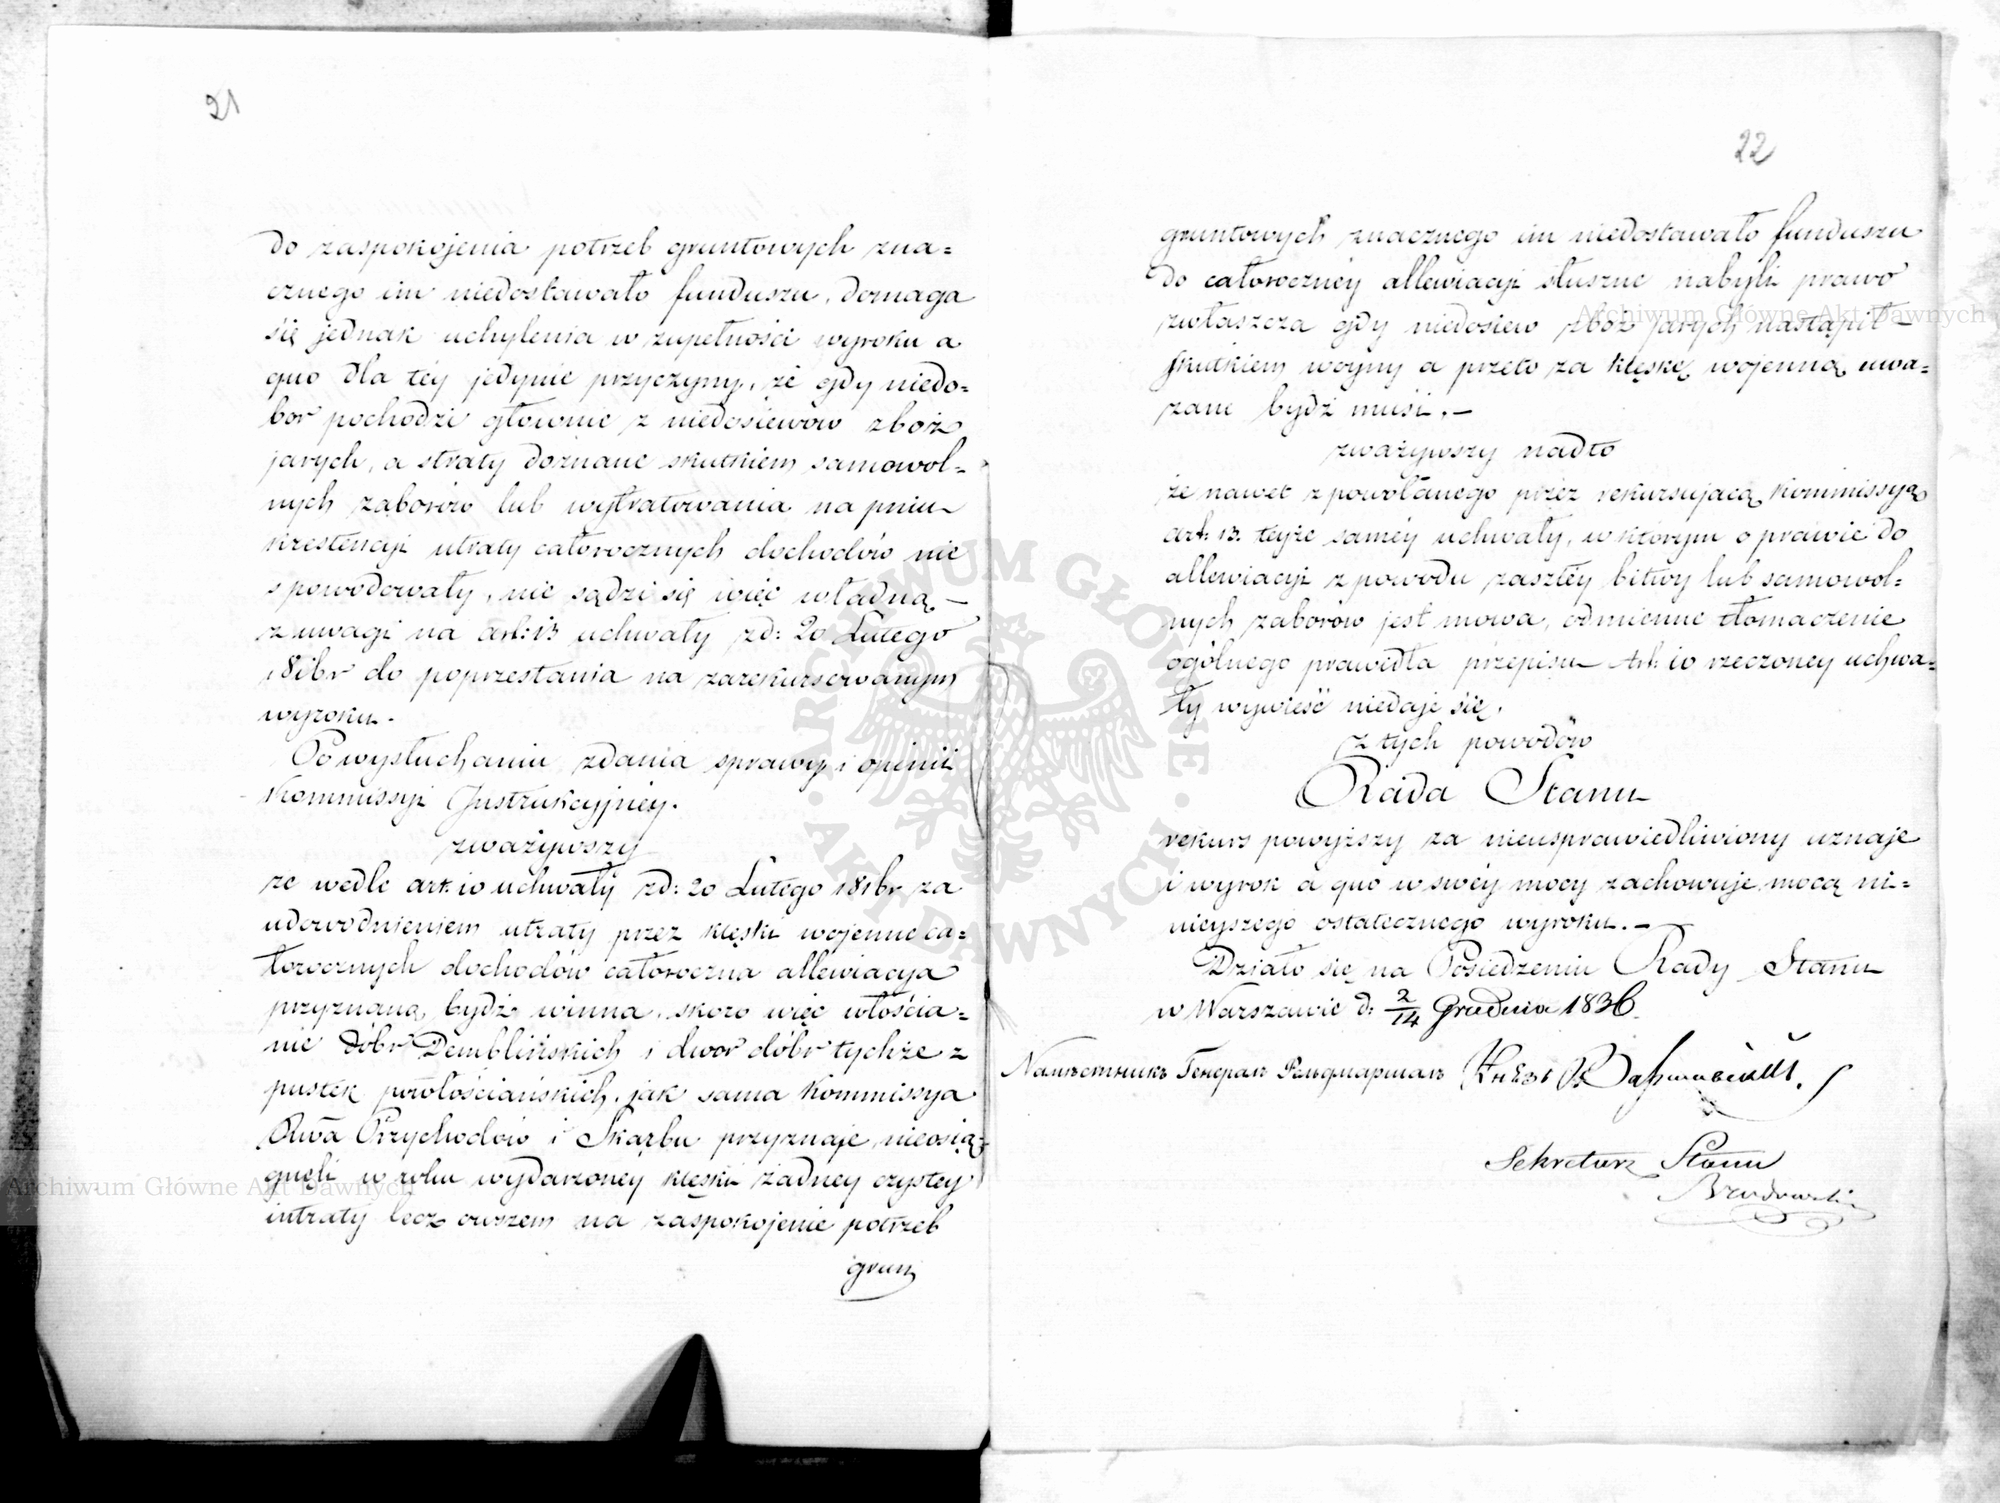 21
do zaspokojenia potrzeb gruntowych zna=
cznego im niedostawało funduszu, domaga
się jednak uchylenia w zupełności wyroku a
quo dla téy jedynie przyczyny, że gdy niedo=
bor pochodzi głownie z niedosiewów zboż
jarych, a straty doznane skutkiem samowol=
nych zaborów lub wytratowania na pniu
krestencyi utraty całorocznych dochodów nie
spowodowały, nie sądzi się więc władną —
z uwagi na art: 13 uchwały z d: 20 Lutego
1816 r do poprzestania na zarekursowanym
wyroku.
Po wysłuchaniu zdania sprawy i opinii
Kommissyi Instrukcyjney.
zważywszy
że wedle art: 10 uchwały z d: 20 Lutego 1816 r za
udowodnieniem utraty przez klęski wojenne ca=
łorocznych dochodów całoroczna allewiacya
przyznaną bydź winna, skoro więc włościa=
nie dóbr Demblińskich i dwor dóbr tychże z
pustek powłościańskich, jak sama Kommissya
Rwa Przychodów i Skarbu przyznaje, nieosią=
gnęli w roku wydarzoney klęski żadney czystey
intraty lecz owszem na zaspokojenie potrzeb
grun
22
gruntowych znacznego im niedostawało funduszu
do całoroczney allewiacyi słuszne nabyli prawo
zwłaszcza gdy niedosiew zboż jarych nastąpił —
skutkiem woyny a przeto za klęskę wojenną uwa=
żane bydź musi. —
zważywszy nadto
że nawet z powołanego przez rekursującą Kommissyą
art: 13. teyże saméy uchwały, w którym o prawie do
allewiacyi z powodu zaszłéy bitwy lub samowol=
nych zaborów jest mowa, odmienne tłomaczenie
ogólnego prawidła przepisu Art: 10 rzeczoney uchwa=
ły wywieść niedaje się.
z tych powodów
Rada Stanu
rekurs powyższy za nieusprawiedliwiony uznaje
i wyrok a quo w swéy mocy zachowuje mocą ni=
nieyszego ostatecznego wyroku. —
Działo się na Posiedzeniu Rady Stanu
w Warszawie d: 2/14 Grudnia 1836.
Намѣстникъ Генералъ Фельдмаршалъ Князь Варшавскій.
Sekretarz Stanu
Archiwum Główne Akt Dawnych
Archiwum Główne Akt Dawnych
ARCHIWUM GŁÓWNE · AKT DAWNYCH ·